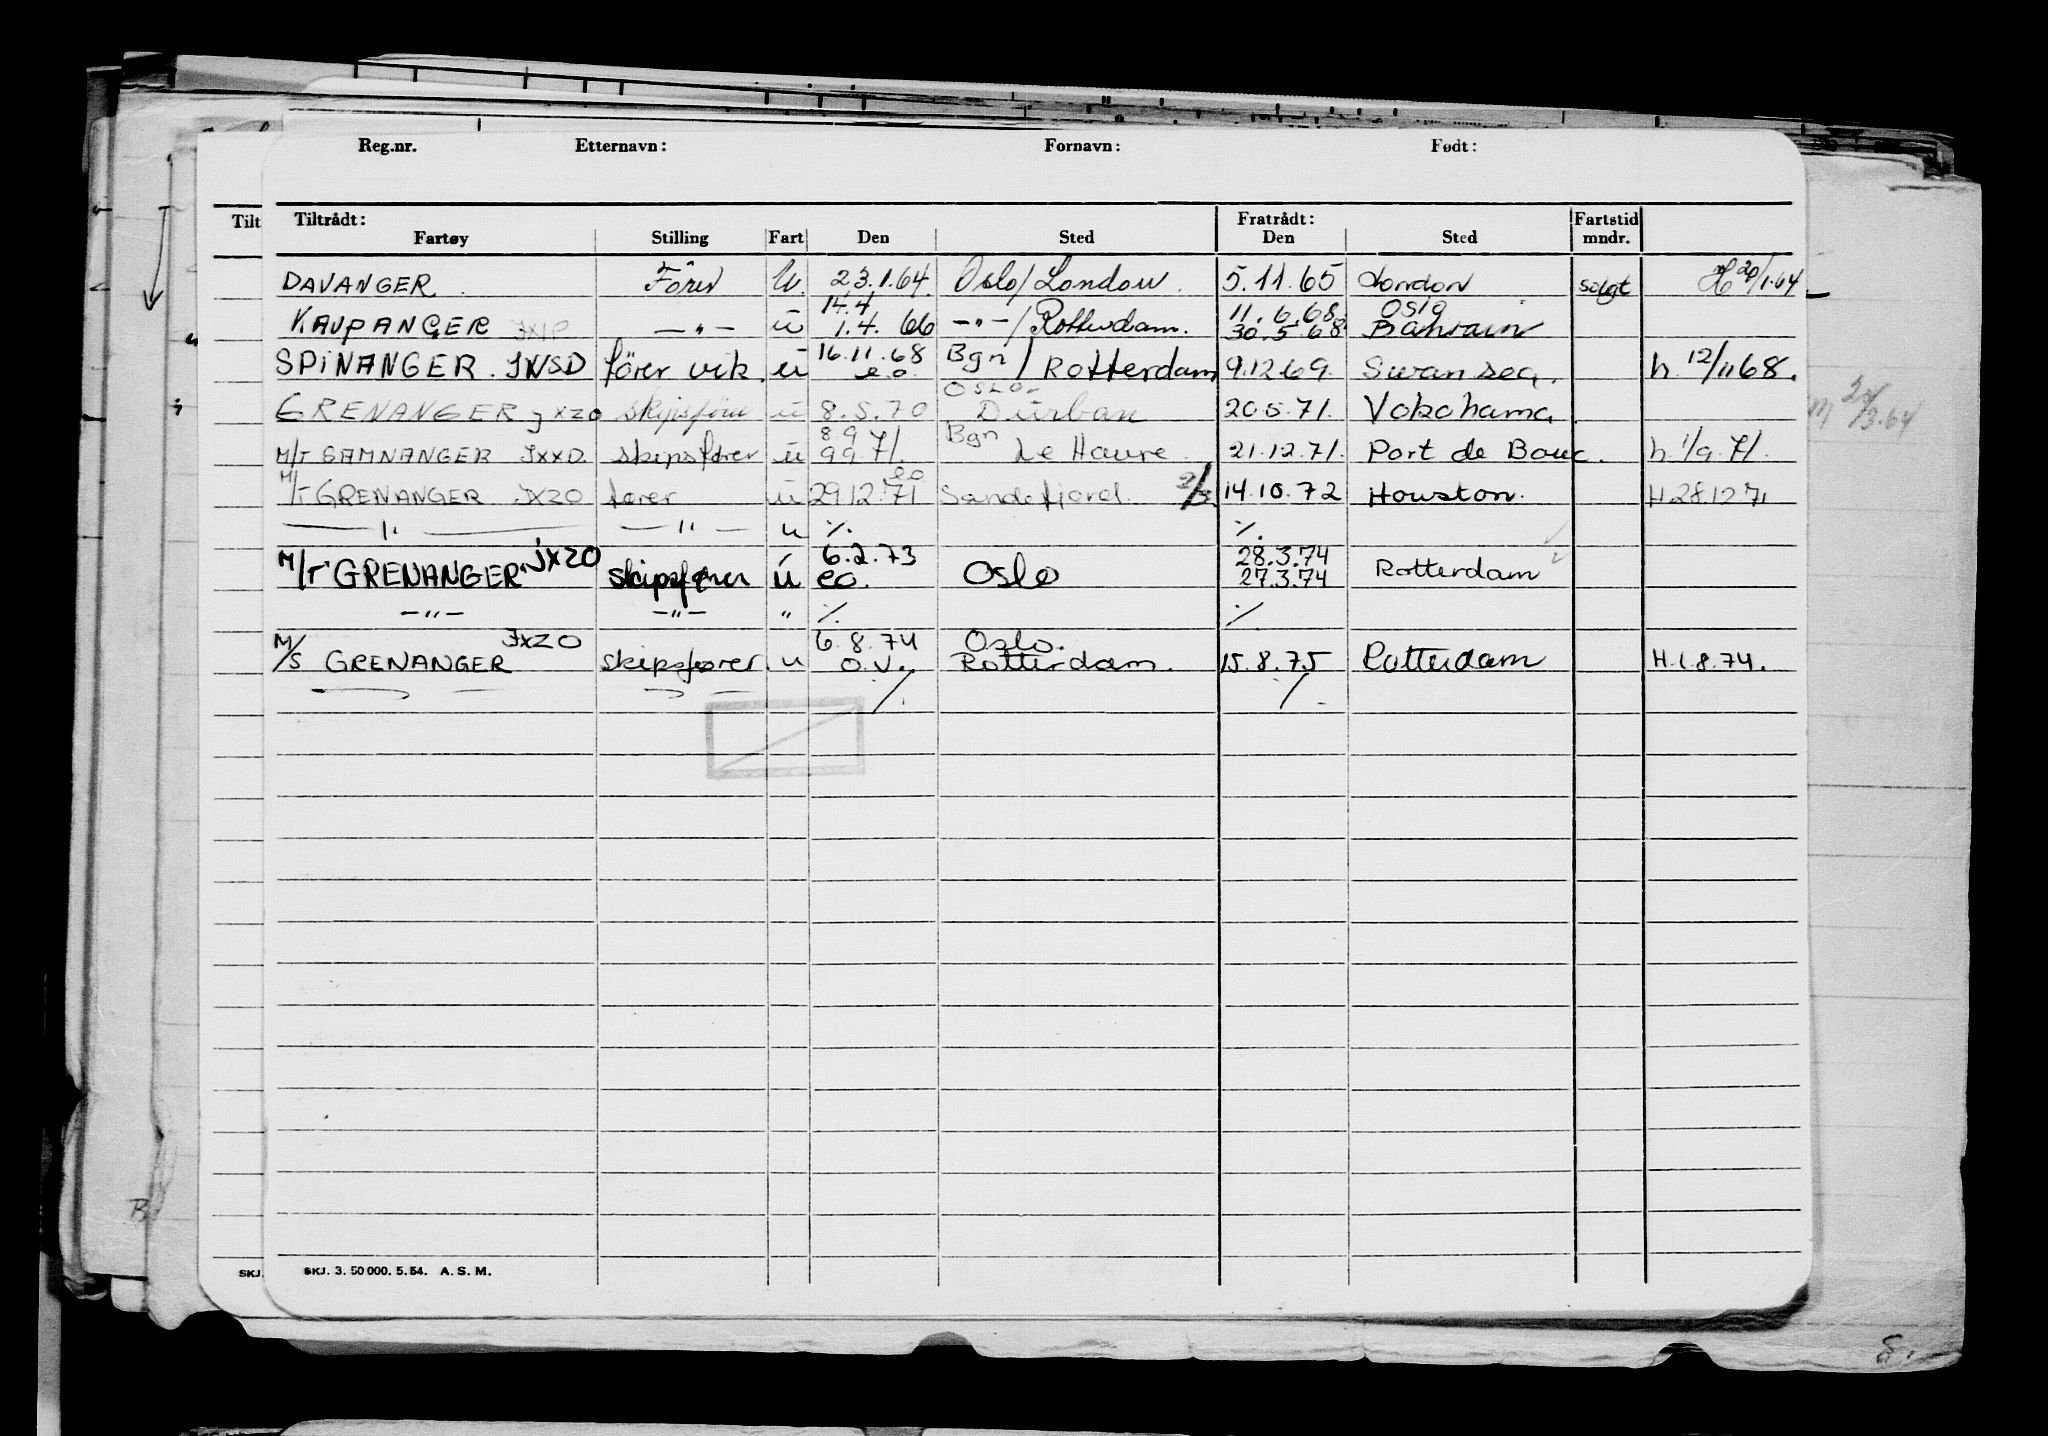 Reg.nr. Etternavn: Fornavn: Født:
Tilt Tiltrådt: Fratrådt: Fartstid
Fartøy Stilling Fart Den Sted Den Sted mndr.
DAVANGER Förer U. 23.1.64. Oslo/London. 5.11.65 London solgt H 20/1.64
14.4 11.6.68 Oslo
KAUPANGER JXIP —"— ü 1.4. 66 —"—/Rotterdam. 30.5.68 Bahrain
16.11.68 Bgn
SPINANGER. JWSD förer vik. ü e.o. / Rotterdam 9.12.69. Swansea. h. 12/11 68.
Oslo
GRENANGER JXZO skipsförer ü 8.5.70 Durban 20.5.71. Yokohama
8.9 Bgn
M/T SAMNANGER JXXD skipsfører ü 9.9.71. Le Havre. 21.12.71. Port de Bouc. h. 1/9.71.
eo
M/T GRENANGER JXZO fører ü 29.12.71 Sandefjord. 2/3 14.10.72 Houston. H 28.12.71
—"— —"— u ·/. ·/.
JXZO 6.2.73 28.3.74
M/T "GRENANGER" skipsfører ü eo. Oslo 27.3.74 Rotterdam
—"— —"— " ·/. ·/.
JXZO 6.8.74 Oslo.
M/S GRENANGER skipsfører. u o.v. Rotterdam. 15.8.75 Rotterdam H.1.8.74.
·/. ·/.
SKJ. SKJ. 3. 50 000. 5. 54. A. S. M.